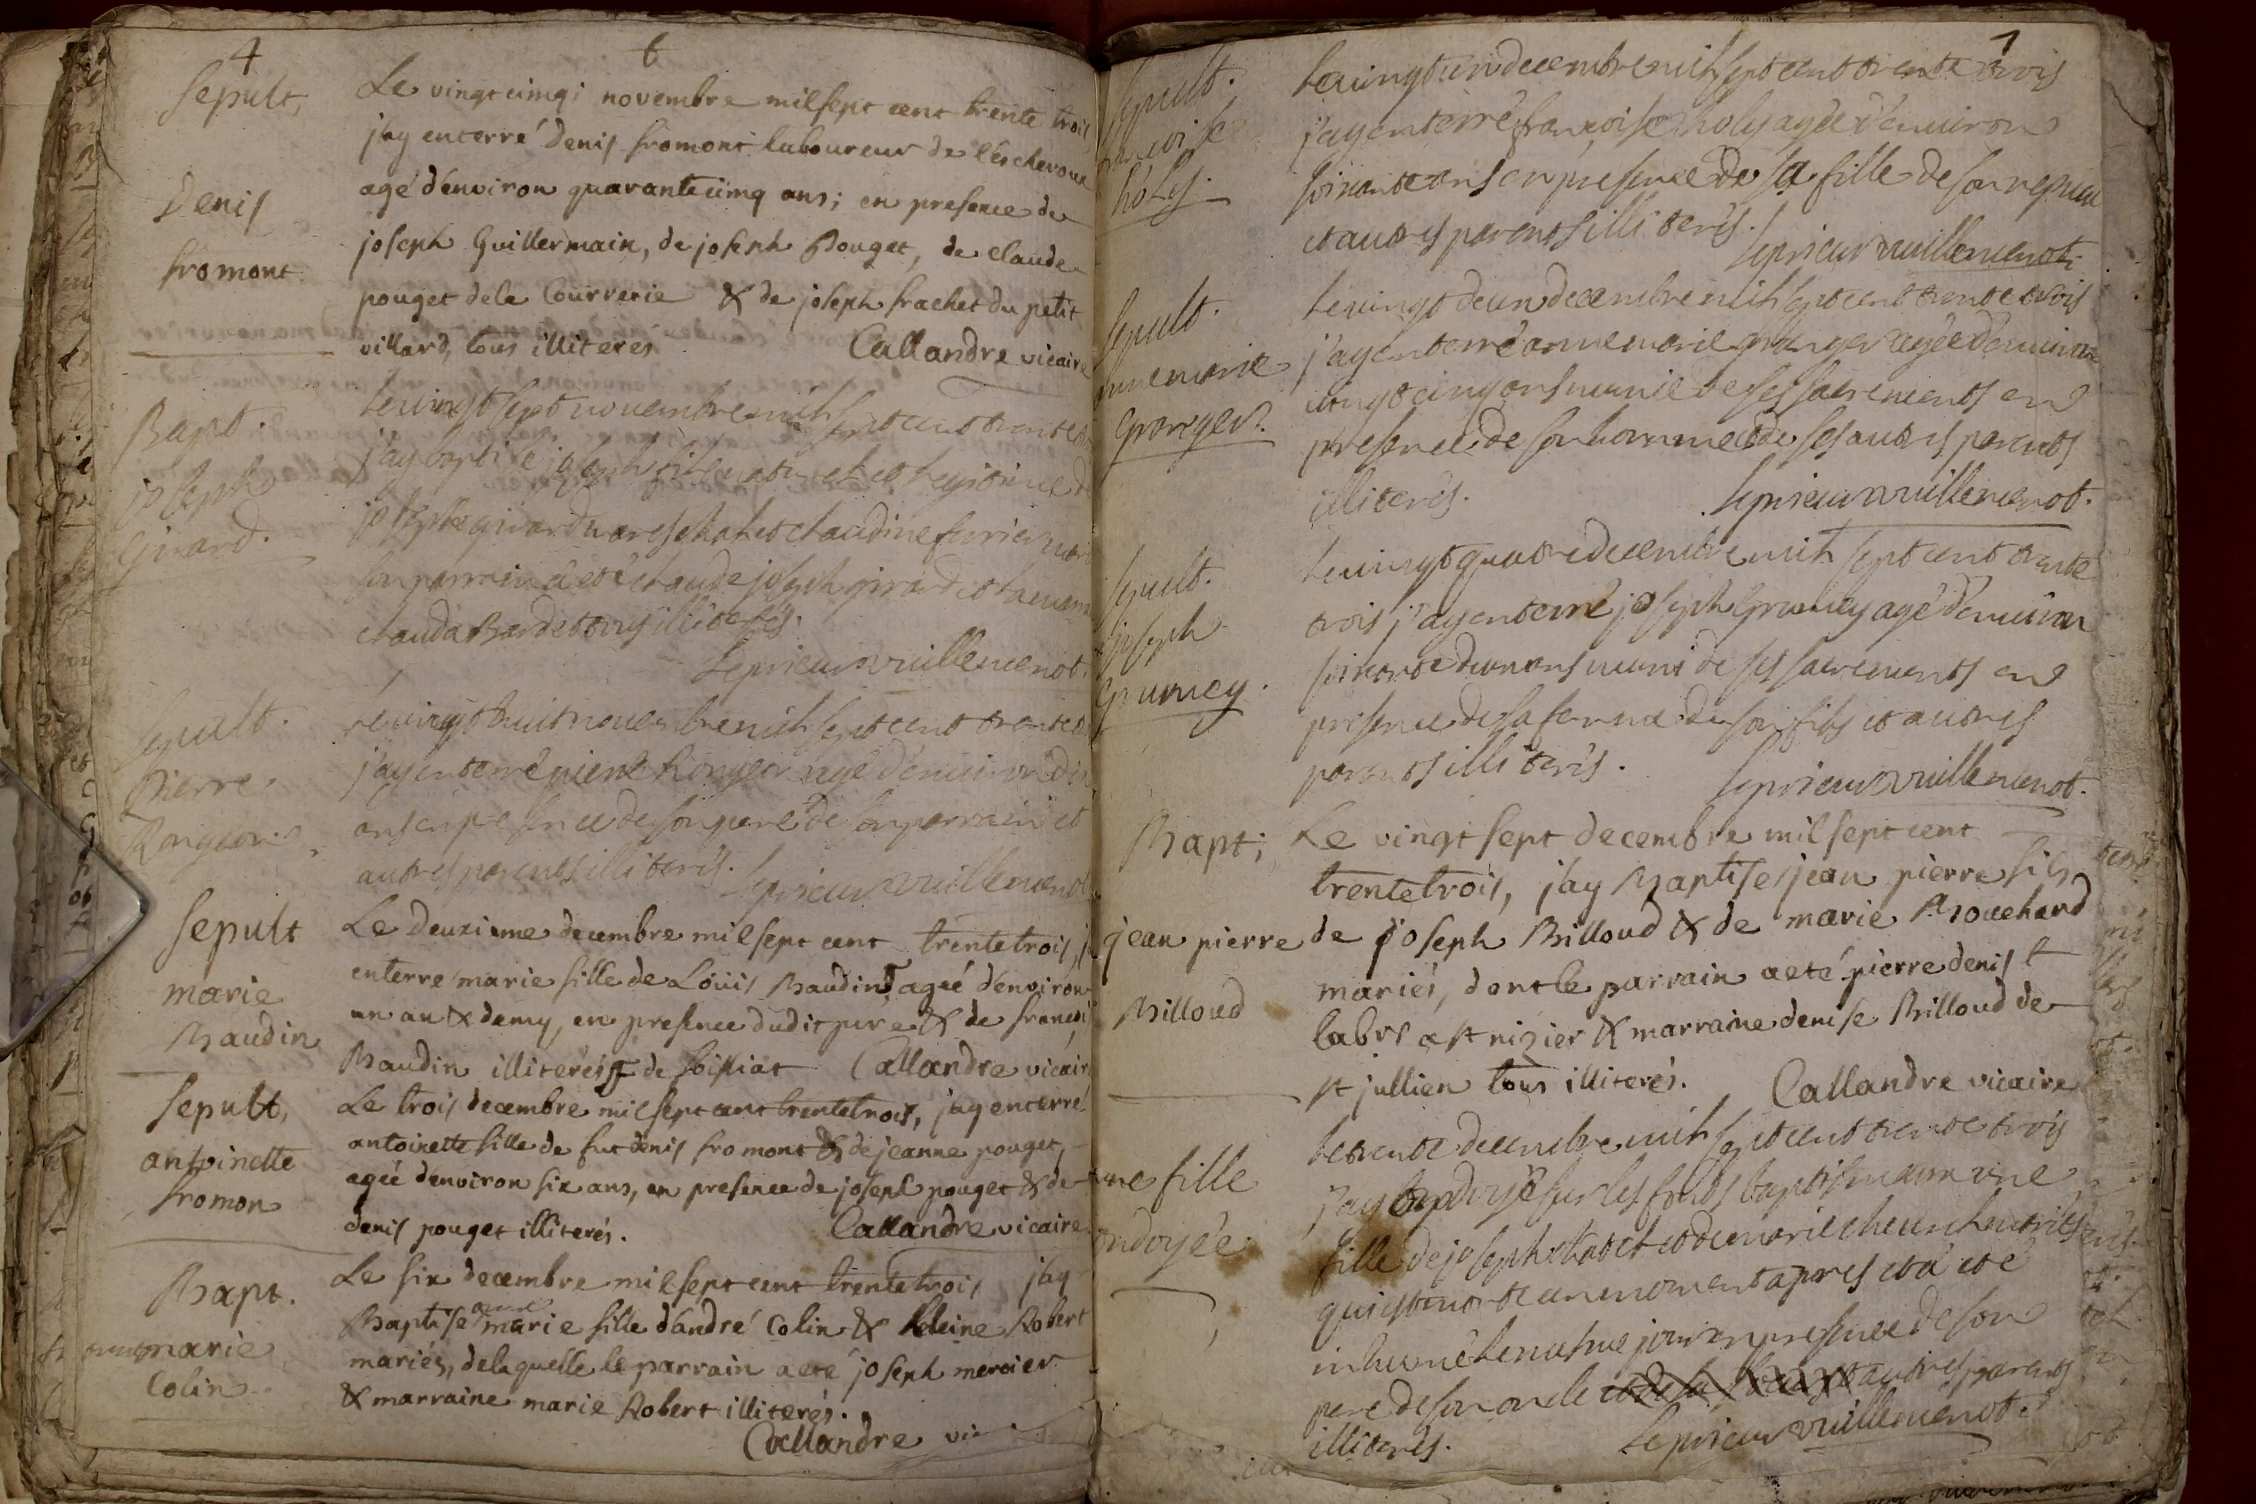 4
6
Sepult,
Denis
fromont
Le vingt cinqi novembre mil sept cent trente trois
j'ay enterré denis fromont laboureur de
agé d'environ quarante cinq ans; en presence de
joseph Guillermain, de joseph Pouget, de claude
pouget de la Courrerie & de joseph frachet du petit
villard, tous illiteres Callandre vicaire
Bapt.
joseph
Girard.
Le vingt sept novembre mil sept cent trente
j'ay baptisé joseph fils naturel et legitime de
joseph girard mareschal et claudine ferrier
son parrain a eté claude joseph girard et la
clauda Bardet tous illiterés.
Le prieur vuillemenot.
Sepult.
Pierre
Rongeon
Le vingt huit novembre mil sept cent trente
j'ay enterré pierre Rongeon agé d'environ
ans en presence de son pere de son parrain et
autres parents illiterés. Le prieur vuillemenot
Sepult
marie
Baudin
Le deuxieme decembre mil sept cent trente trois, j
enterre marie fille de Loüis Baudin agée d'environ
un an & demy, en presence dudit pere & de
Baudin illiterés de soissiat Callandre vicaire
Sepult,
antoinette
fromon
Le trois decembre mil sept cent trente trois, j'ay enterré
antoinette fille de fut denis fromont & de jeanne pouget,
agée d'environ six ans, en presence de joseph pouget & de
denis pouget illiterés. Callandre vicaire
Bapt.
marie
Colin
Le six decembre mil sept cent trente trois j'ay
Baptise marie fille d'andré Colin & Robert
mariés, de laquelle le parrain a eté joseph mercier
& marraine marie Robert illiterés.
Callandre vic
7
Sepult.
holy.
Le vingt un decembre mil sept cent trente trois
j'ay enterré françoise holy agée d'environ
soixante ans en presence de sa fille de son nepveu
et autres parents illiterés.
Le prieur vuillemenot.
Sepult.
anne marie
Granger.
Le vingt deux decembre mil sept cent trente trois
j'ay enterré anne marie granger agée d'environ
vingt cinq ans munie de ses sacrements en
presence de son homme et de ses autres parents
illiterés. Le prieur vuillemenot.
Sepult.
joseph
Grumey.
Le vingt quatre decembre mil sept cent trente
trois j'ay enterré joseph Grumey agé d'environ
soixante deux ans muni de ses sacrements en
presence de sa femme de son fils et autres
parents illiterés. Le prieur vuillemenot.
Bapt;
jean pierre
Billoud
Le vingt sept decembre mil sept cent
trente trois, j'ay Baptisé jean pierre fils
de joseph Billoud & de marie Bouchard
mariés, dont le parrain a eté pierre denis
labvs a st nizier & marraine denise Billoud de
st jullien tous illiterés. Callandre vicaire
une fille
ondoyée
Le trente decembre mil sept cent trente trois
j'ay ondoyé sur les fonds baptismaux une
fille de joseph et de marie mariés
qui est morte un moment apres et a eté
inhumé le mesme jour en presence de son
pere de son oncle et autres parents
illiterés. Le prieur vuillemenot.